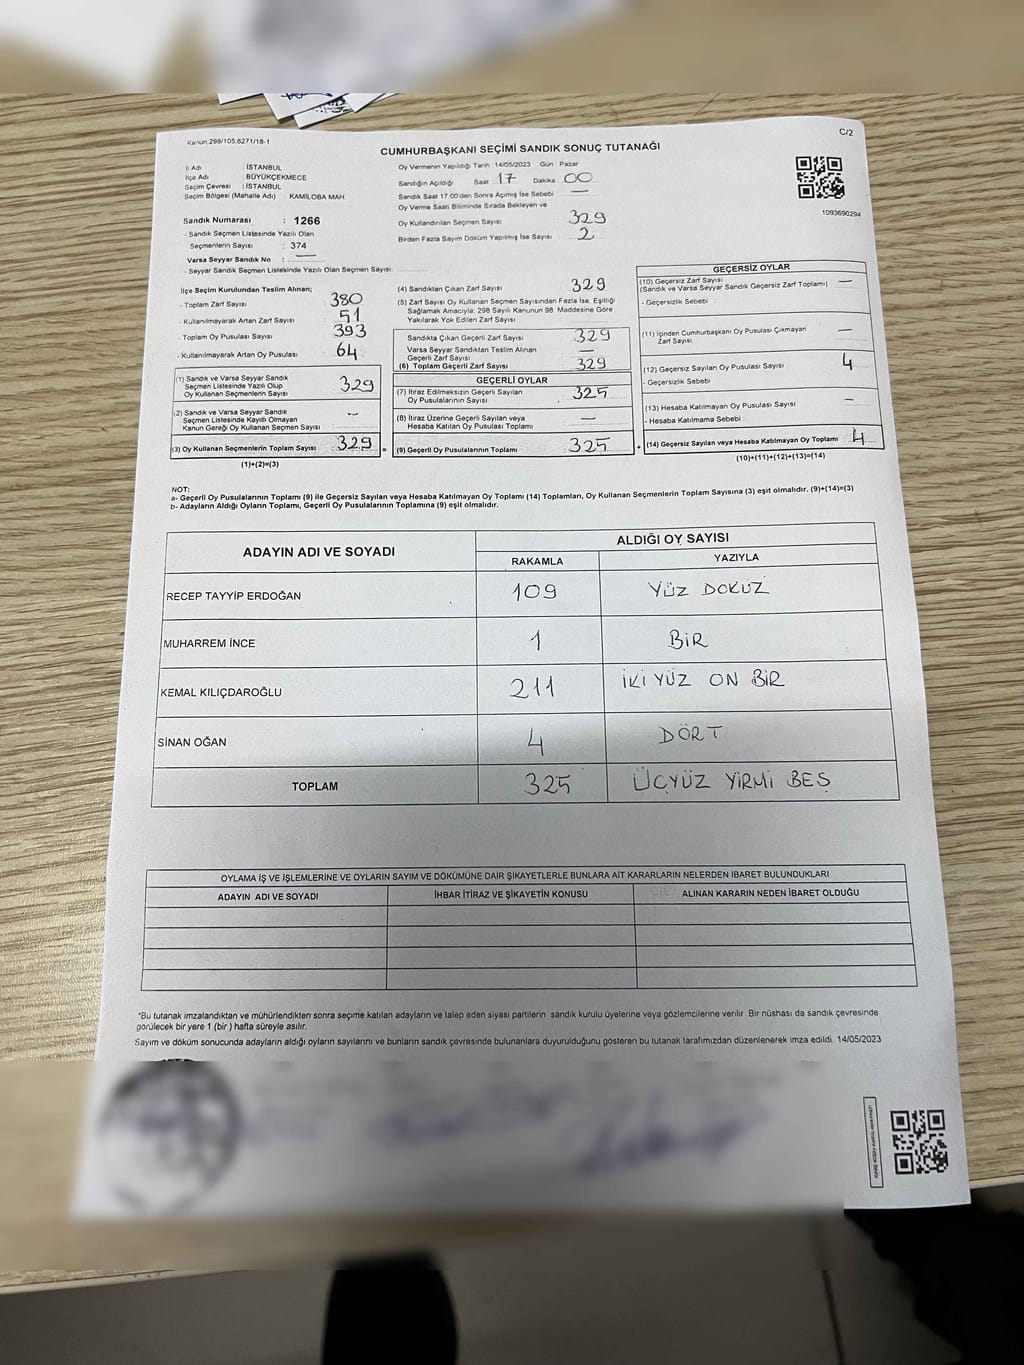 Kanun:298/105.6271/18-1
C/2
CUMHURBAŞKANI SEÇİMİ SANDIK SONUÇ TUTANAĞI
İl Adı : İSTANBUL
İlçe Adı : BÜYÜKÇEKMECE
Seçim Çevresi : İSTANBUL
Seçim Bölgesi (Mahalle Adı) : KAMİLOBA MAH.
Sandık Numarası : 1266
- Sandık Seçmen Listesinde Yazılı Olan
Seçmenlerin Sayısı : 374
Varsa Seyyar Sandık No : —
- Seyyar Sandık Seçmen Listesinde Yazılı Olan Seçmen Sayısı:
Oy Vermenin Yapıldığı Tarih : 14/05/2023 Gün : Pazar
Sandığın Açıldığı Saat 17 Dakika 00
Sandık Saat 17:00'den Sonra Açımış İse Sebebi : —
Oy Verme Saati Bitiminde Sırada Bekleyen ve
Oy Kullandırılan Seçmen Sayısı : 329
Birden Fazla Sayım Döküm Yapılmış İse Sayısı : 2
1093690294
İlçe Seçim Kurulundan Teslim Alınan;
- Toplam Zarf Sayısı : 380
- Kullanılmayarak Artan Zarf Sayısı : 51
- Toplam Oy Pusulası Sayısı : 393
- Kullanılmayarak Artan Oy Pusulası : 64
(1) Sandık ve Varsa Seyyar Sandık
Seçmen Listesinde Yazılı Olup
Oy Kullanan Seçmenlerin Sayısı : 329
(2) Sandık ve Varsa Seyyar Sandık
Seçmen Listesinde Kayıtlı Olmayan
Kanun Gereği Oy Kullanan Seçmen Sayısı : —
(3) Oy Kullanan Seçmenlerin Toplam Sayısı : 329 =
(1)+(2)=(3)
(4) Sandıktan Çıkan Zarf Sayısı : 329
(5) Zarf Sayısı Oy Kullanan Seçmen Sayısından Fazla İse, Eşitliği
Sağlamak Amacıyla; 298 Sayılı Kanunun 98. Maddesine Göre
Yakılarak Yok Edilen Zarf Sayısı :
Sandıkta Çıkan Geçerli Zarf Sayısı : 329
Varsa Seyyar Sandıktan Teslim Alınan
Geçerli Zarf Sayısı : —
(6) Toplam Geçerli Zarf Sayısı : 329
GEÇERLİ OYLAR
(7) İtiraz Edilmeksizin Geçerli Sayılan
Oy Pusulalarının Sayısı : 325
(8) İtiraz Üzerine Geçerli Sayılan veya
Hesaba Katılan Oy Pusulası Toplamı : —
(9) Geçerli Oy Pusulalarının Toplamı : 325 +
GEÇERSİZ OYLAR
(10) Geçersiz Zarf Sayısı : —
(Sandık ve Varsa Seyyar Sandık Geçersiz Zarf Toplamı)
- Geçersizlik Sebebi :
(11) İçinden Cumhurbaşkanı Oy Pusulası Çıkmayan
Zarf Sayısı : —
(12) Geçersiz Sayılan Oy Pusulası Sayısı : 4
- Geçersizlik Sebebi :
(13) Hesaba Katılmayan Oy Pusulası Sayısı : —
- Hesaba Katılmama Sebebi :
(14) Geçersiz Sayılan veya Hesaba Katılmayan Oy Toplamı : 4
(10)+(11)+(12)+(13)=(14)
NOT:
a- Geçerli Oy Pusulalarının Toplamı (9) ile Geçersiz Sayılan veya Hesaba Katılmayan Oy Toplamı (14) Toplamları, Oy Kullanan Seçmenlerin Toplam Sayısına (3) eşit olmalıdır. (9)+(14)=(3)
b- Adayların Aldığı Oyların Toplamı, Geçerli Oy Pusulalarının Toplamına (9) eşit olmalıdır.
ADAYIN ADI VE SOYADI
ALDIĞI OY SAYISI
RAKAMLA YAZIYLA
RECEP TAYYİP ERDOĞAN 109 YÜZ DOKUZ
MUHARREM İNCE 1 BİR
KEMAL KILIÇDAROĞLU 211 İKİ YÜZ ON BİR
SİNAN OĞAN 4 DÖRT
TOPLAM 325 ÜÇYÜZ YİRMİ BEŞ
OYLAMA İŞ VE İŞLEMLERİNE VE OYLARIN SAYIM VE DÖKÜMÜNE DAİR ŞİKAYETLERLE BUNLARA AİT KARARLARIN NELERDEN İBARET BULUNDUKLARI
ADAYIN ADI VE SOYADI İHBAR İTİRAZ VE ŞİKAYETİN KONUSU ALINAN KARARIN NEDEN İBARET OLDUĞU
*Bu tutanak imzalandıktan ve mühürlendikten sonra seçime katılan adayların ve talep eden siyasi partilerin sandık kurulu üyelerine veya gözlemcilerine verilir. Bir nüshası da sandık çevresinde
görülecek bir yere 1 (bir ) hafta süreyle asılır.
Sayım ve döküm sonucunda adayların aldığı oyların sayılarını ve bunların sandık çevresinde bulunanlara duyurulduğunu gösteren bu tutanak tarafımızdan düzenlenerek imza edildi. 14/05/2023